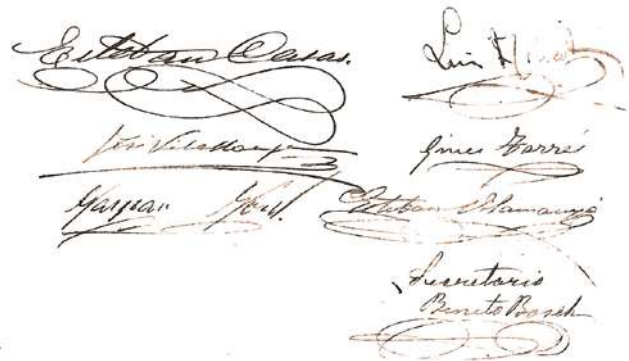 Esteban Casas.
Luis
José Vilallonga
Ginés Farrés
Gaspar
Esteban Vilamanyá
Secretario
Benito Bosch